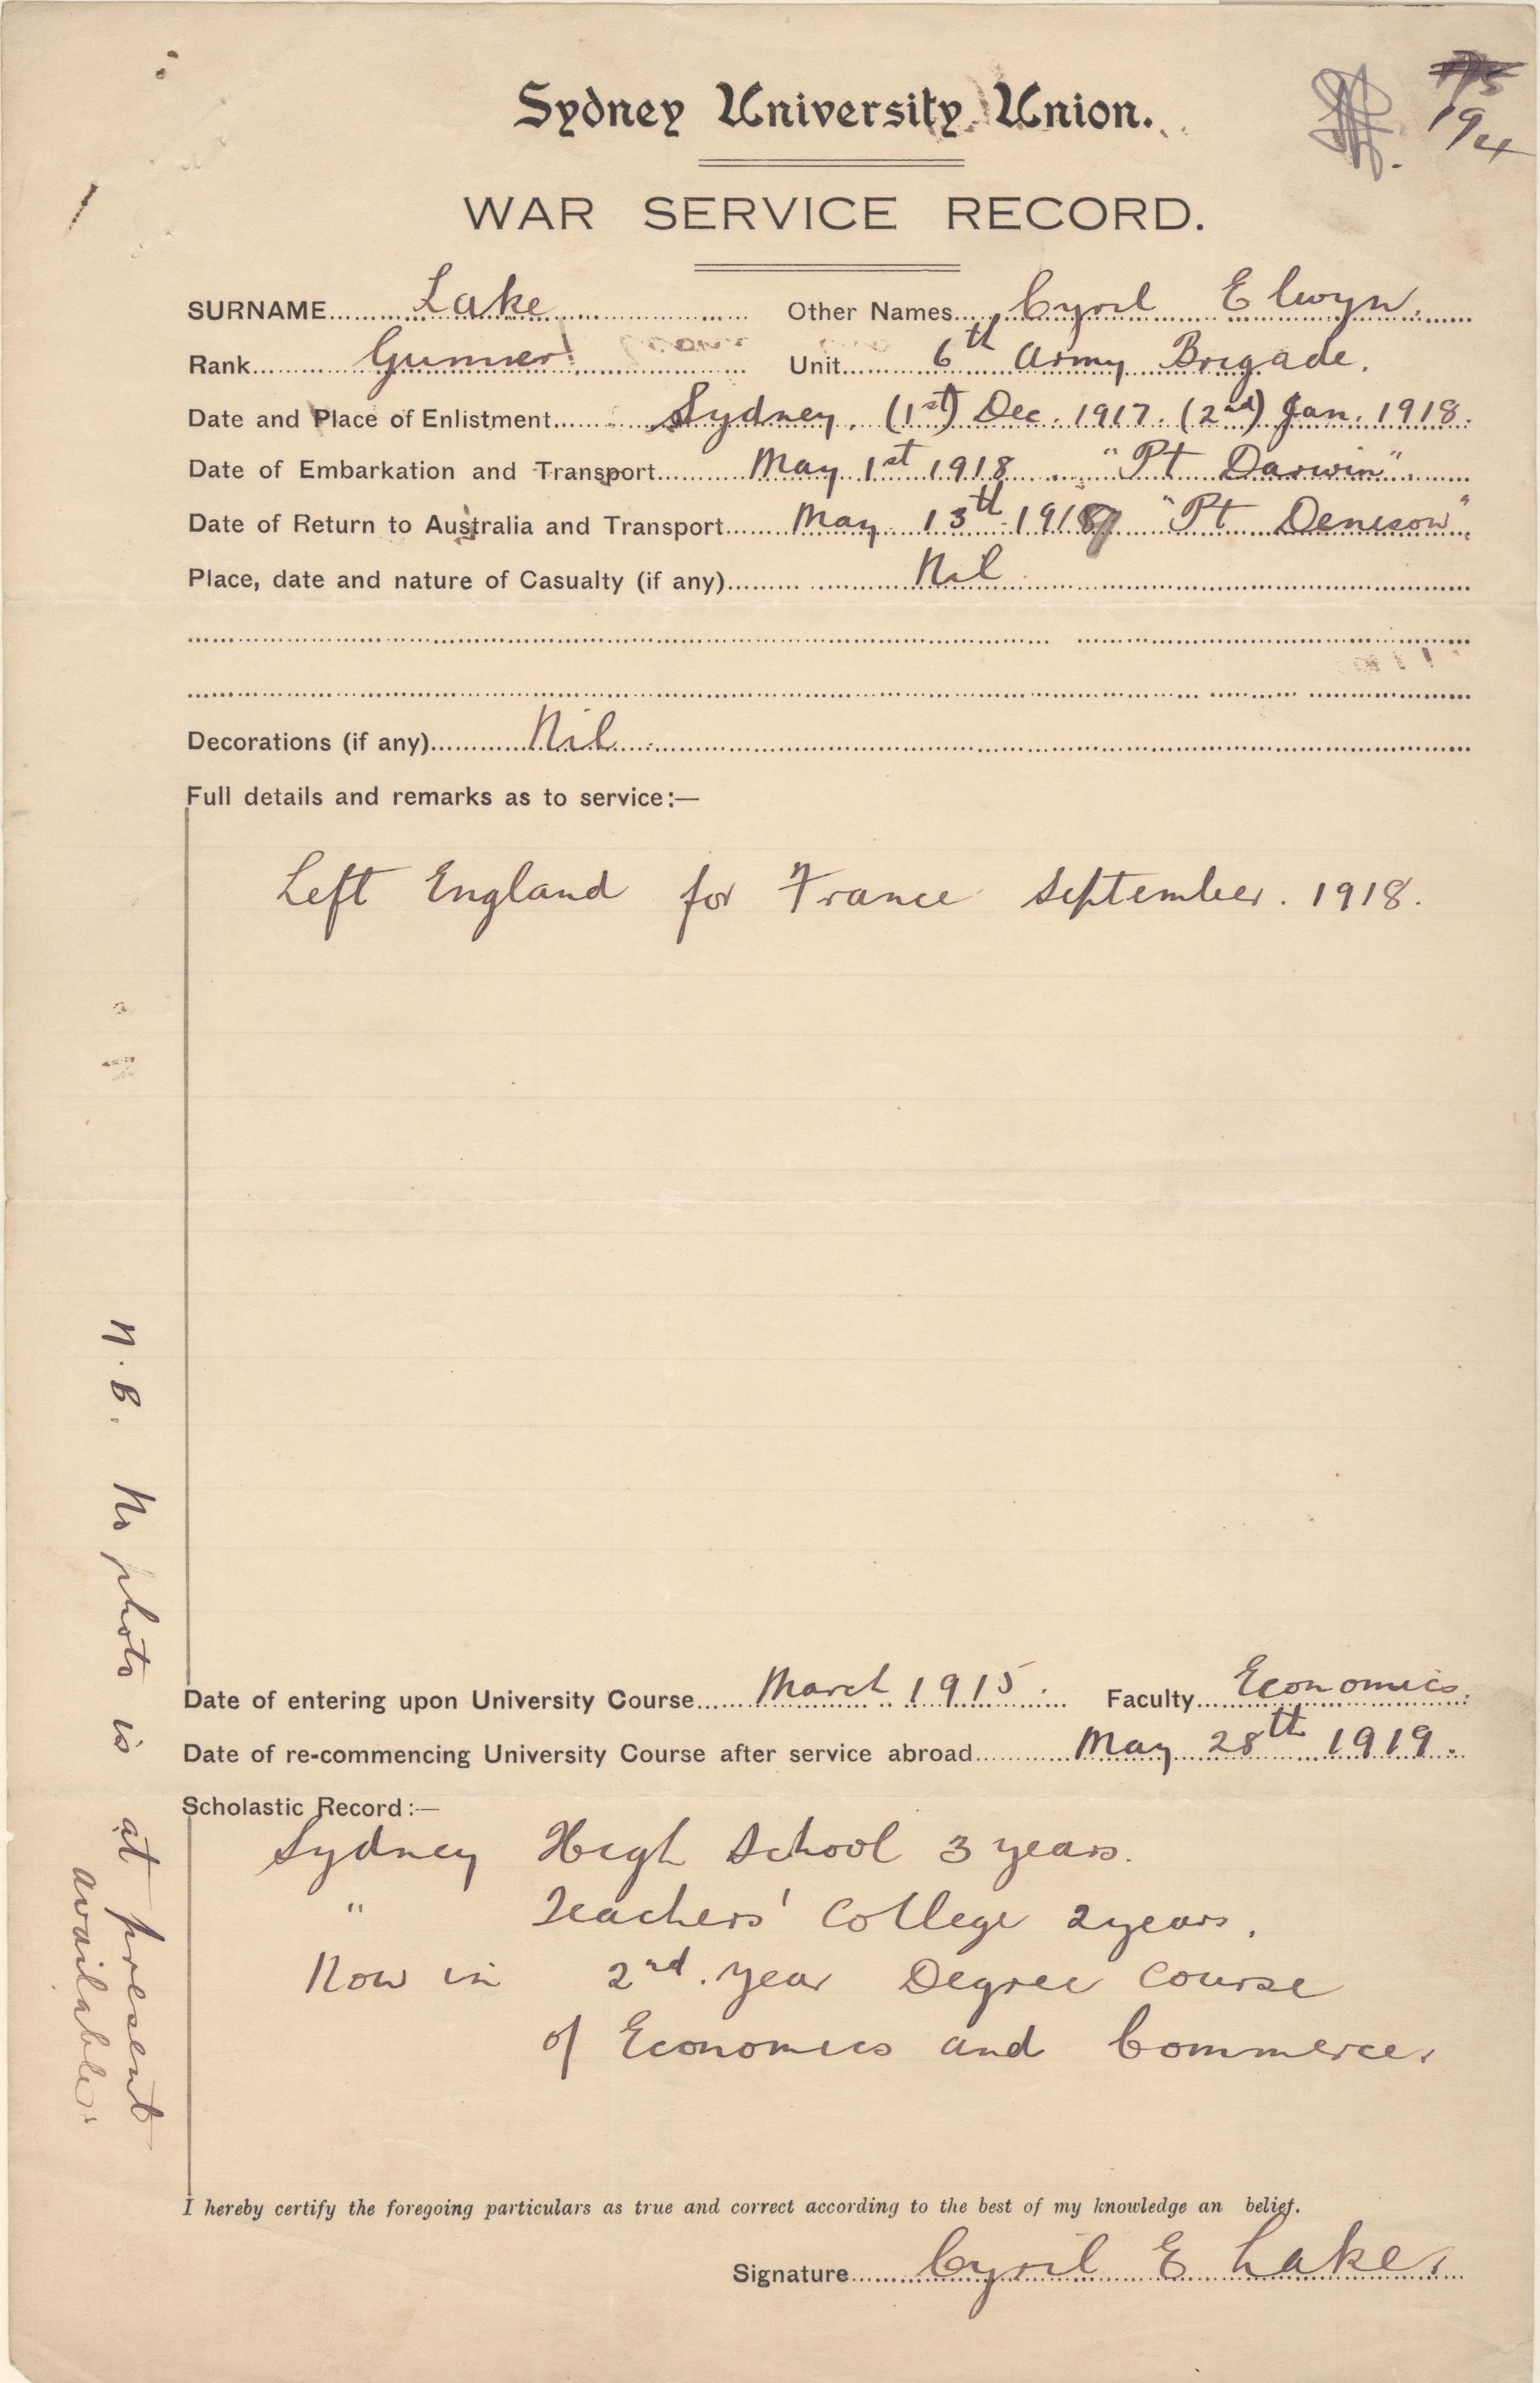 Sydney University Union.
194
WAR SERVICE RECORD.
SURNAME Lake Other Names Cyril Elwyn.
Rank Gunner Unit 6th Army Brigade.
Date and Place of Enlistment Sydney. (1st) Dec. 1917. (2nd) Jan. 1918.
Date of Embarkation and Transport May 1st 1918 "Pt Darwin".
Date of Return to Australia and Transport May 13th 1919 "Pt Denison".
Place, date and nature of Casualty (if any) Nil
Decorations (if any) Nil
Full details and remarks as to service:—
Left England for France September. 1918.
Date of entering upon University Course March 1915. Faculty Economics.
Date of re-commencing University Course after service abroad May 28th 1919.
Scholastic Record:—
Sydney High School 3 years.
" Teachers' College 2 years.
Now in 2nd. year Degree Course
of Economics and Commerce.
I hereby certify the foregoing particulars as true and correct according to the best of my knowledge an belief.
Signature Cyril E Lake.
N.B. No photo is at present
available.